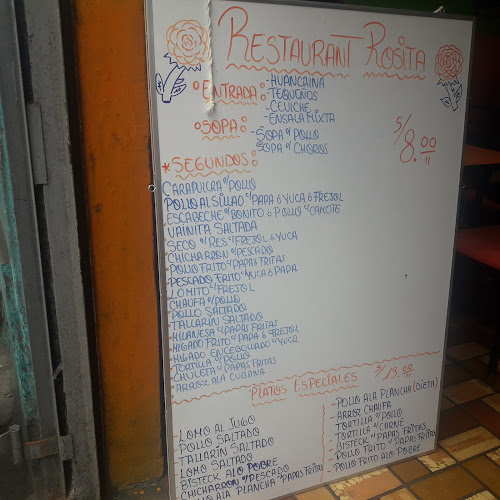 RESTAURANT ROSITA
ENTRADA:
-HUANCAINA
-TEQUEÑOS
-CEVICHE
-ENSALA MIXTA
SOPA:
-SOPA c/ POLLO
SOPA c/ CHOROS
S/8.00
*SEGUNDOS:
CARAPULCRA c/POLLO
POLLO AL SILLAO c/PAPA ó YUCA ó FREJOL
-ESCABECHE c/BONITO ó POLLO c/CAMOTE
-VAINITA SALTADA
SECO c/RES c/FREJOL ó YUCA
-CHICHARRON c/PESCADO
-POLLO FRITO c/PAPAS FRITAS
PESCADO FRITO c/YUCA ó PAPA
-LOMITO c/FREJOL
-CHAUFA c/POLLO
POLLO SALTADO
-TALLARIN SALTADO
-MILANESA c/PAPAS FRITAS
-HIGADO FRITO c/PAPA ó FREJOL
-HIGADO ENCEBOLLADO c/YUCA
-TORTILLA c/POLLO
-CHULETA c/PAPAS FRITAS
-ARROZ ALA CUBANA
PLATOS ESPECIALES S/13.00
-LOMO AL JUGO
-POLLO SALTADO
-TALLARIN SALTADO
-LOMO SALTADO
-BISTECK ALO POBRE
-CHICHARRON c/PESCADO
ALA PLANCHA c/PAPAS FRITAS
-POLLO ALA PLANCHA (DIETA)
-ARROZ CHAUFA
-TORTILLA c/POLLO
-TORTILLA c/CARNE
-BISTECK c/PAPAS FRITAS
-POLLO FRITO c/PAPAS FRITAS
-POLLO FRITO ALO POBRE